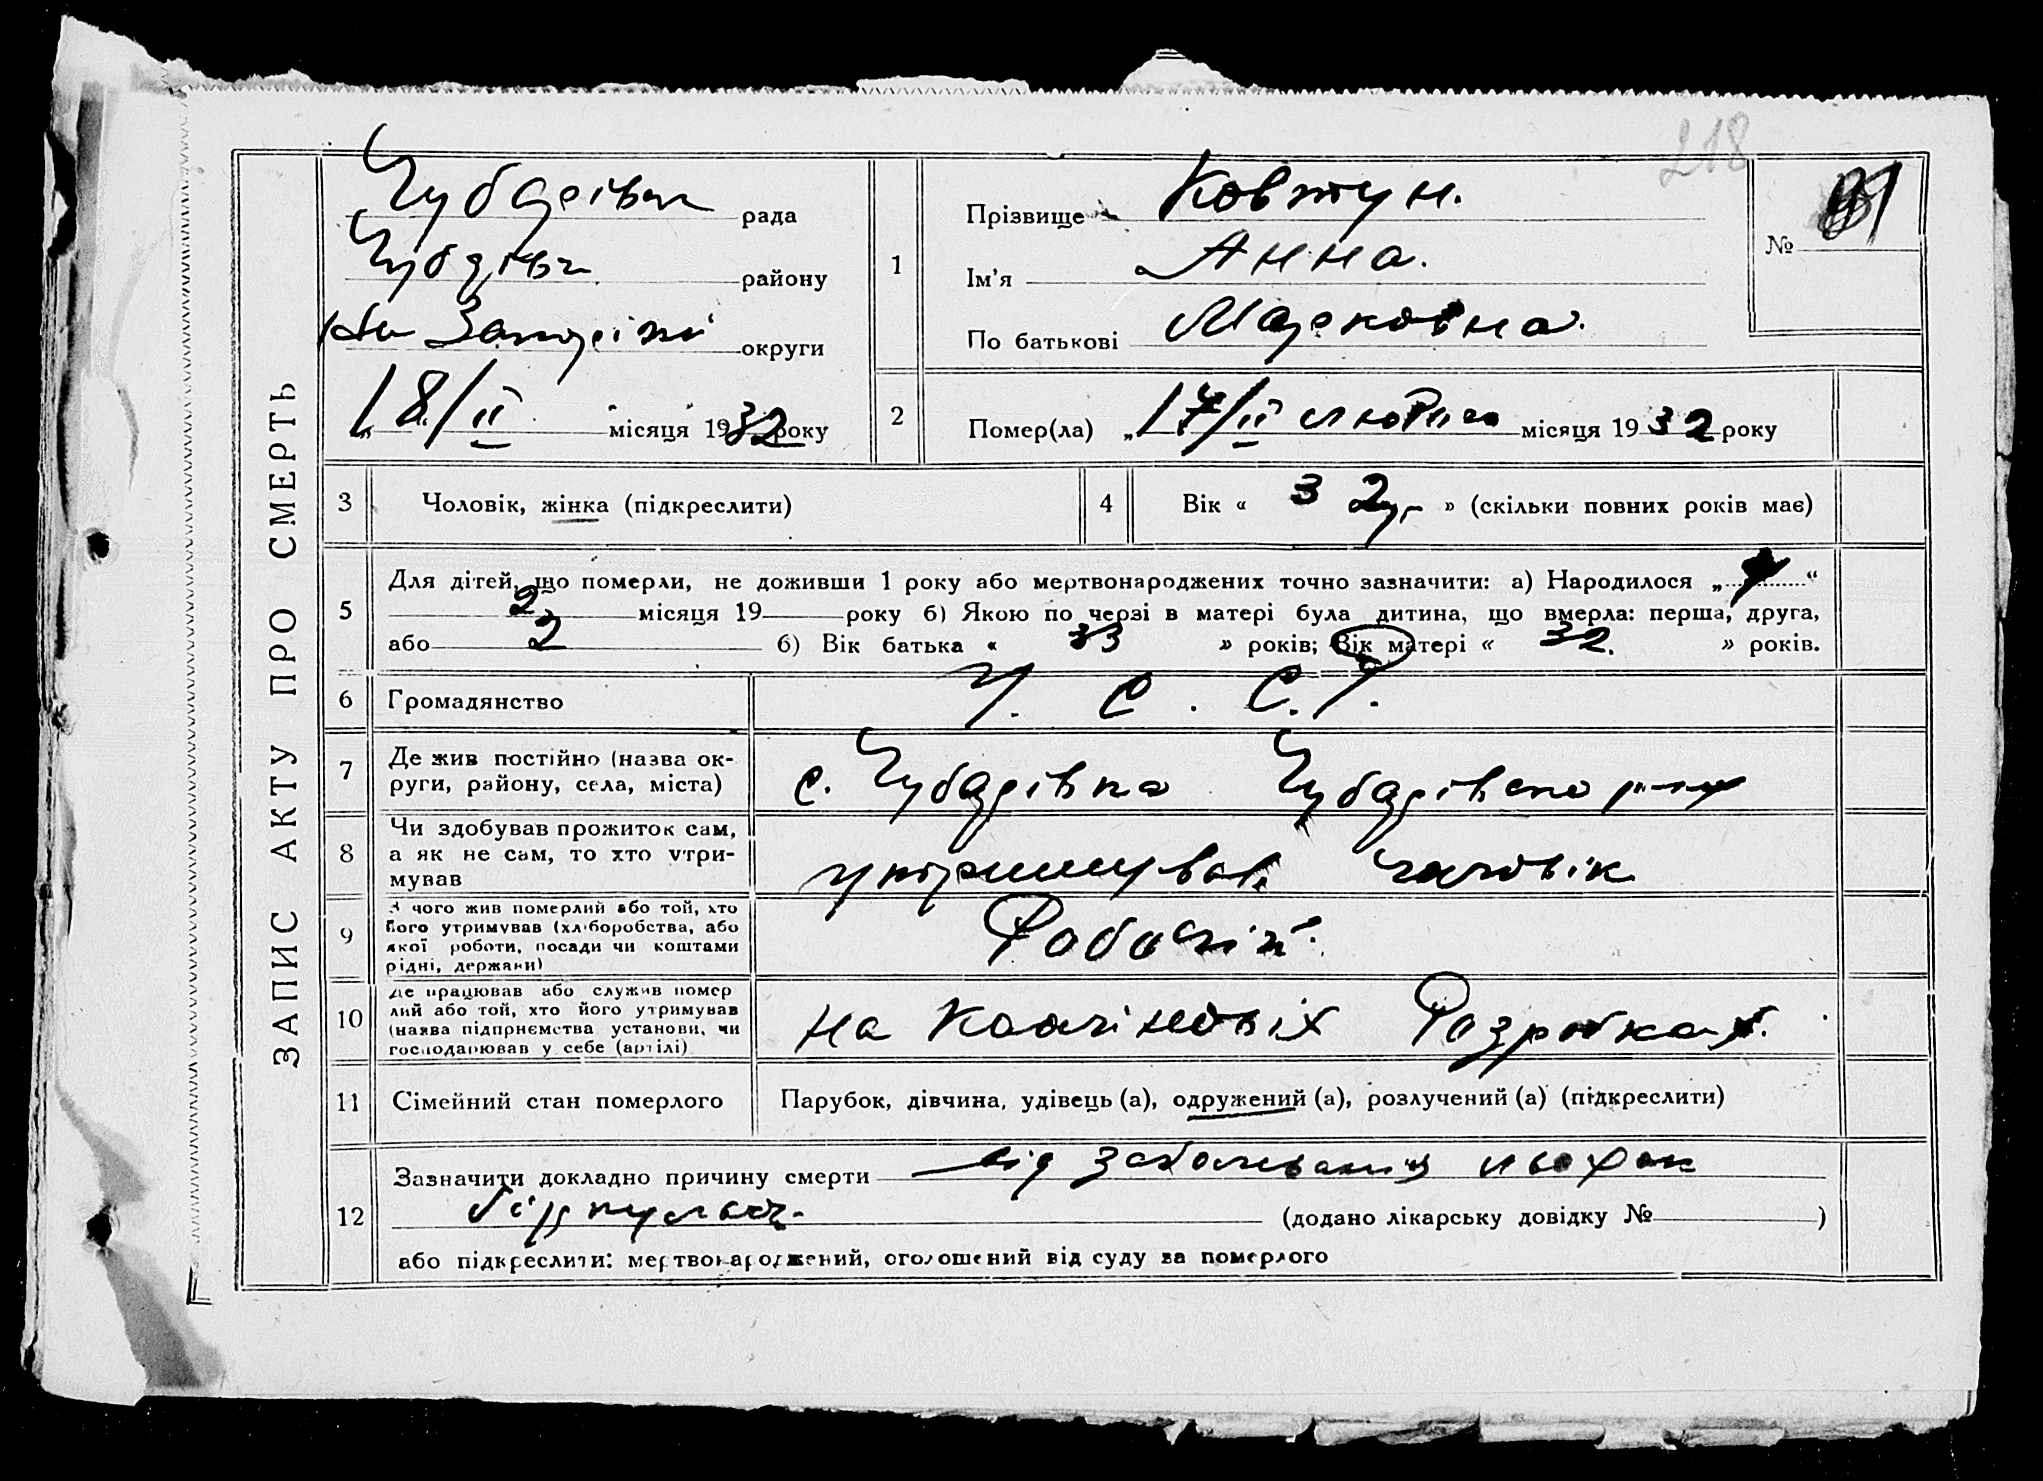 218
ЗАПИС АКТУ ПРО СМЕРТЬ
Чубарівська рада
Чубарівськ району
на Запоріжжі округи
„18/II місяця 1932 року
1
Прізвище Ковтун.
Ім'я Анна.
По батькові Марковна.
№
2
Помер(ла) „17/II лютого місяця 1932 року
3 Чоловік, жінка (підкреслити)
4 Вік « 32 р. » (скільки повних років має)
5 Для дітей, що померли, не доживши 1 року або мертвонароджених точно зазначити: а) Народилося „ “
2 місяця 19 року б) Якою по черзі в матері була дитина, що вмерла: перша, друга,
або 2 б) Вік батька « 33 » років; Вік матері « 32. » років.
6 Громадянство У. С. С. Р.
7 Де жив постійно (назва округи, району, села, міста)
с. Чубарівка Чубарівсько р-ну
8 Чи здобував прожиток сам, а як не сам, то хто утримував
утримував чоловік
9 З чого жив померлий або той, хто його утримував (хліборобства, або якої роботи, посади чи коштами рідні, держави)
Робочій.
10 Де працював або служив померлий або той, хто його утримував (назва підприємства установи, чи господарював у себе (артілі)
на Каолінових Розробках.
11 Сімейний стан померлого
Парубок, дівчина, удівець (а), одружений (а), розлучений (а) (підкреслити)
12 Зазначити докладно причину смерти від заболевания
(додано лікарську довідку № )
або підкреслити: мертвонароджений, оголошений від суду за померлого